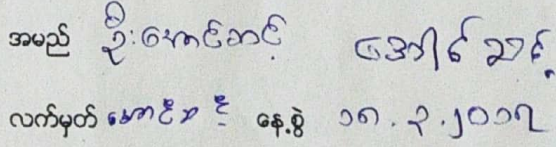 အမည် ဦးအောင်ဆင့် အောင်ဆင့်
လက်မှတ် အောင်ဆင့် နေ့စွဲ ၁၈.၃.၂၀၁၇